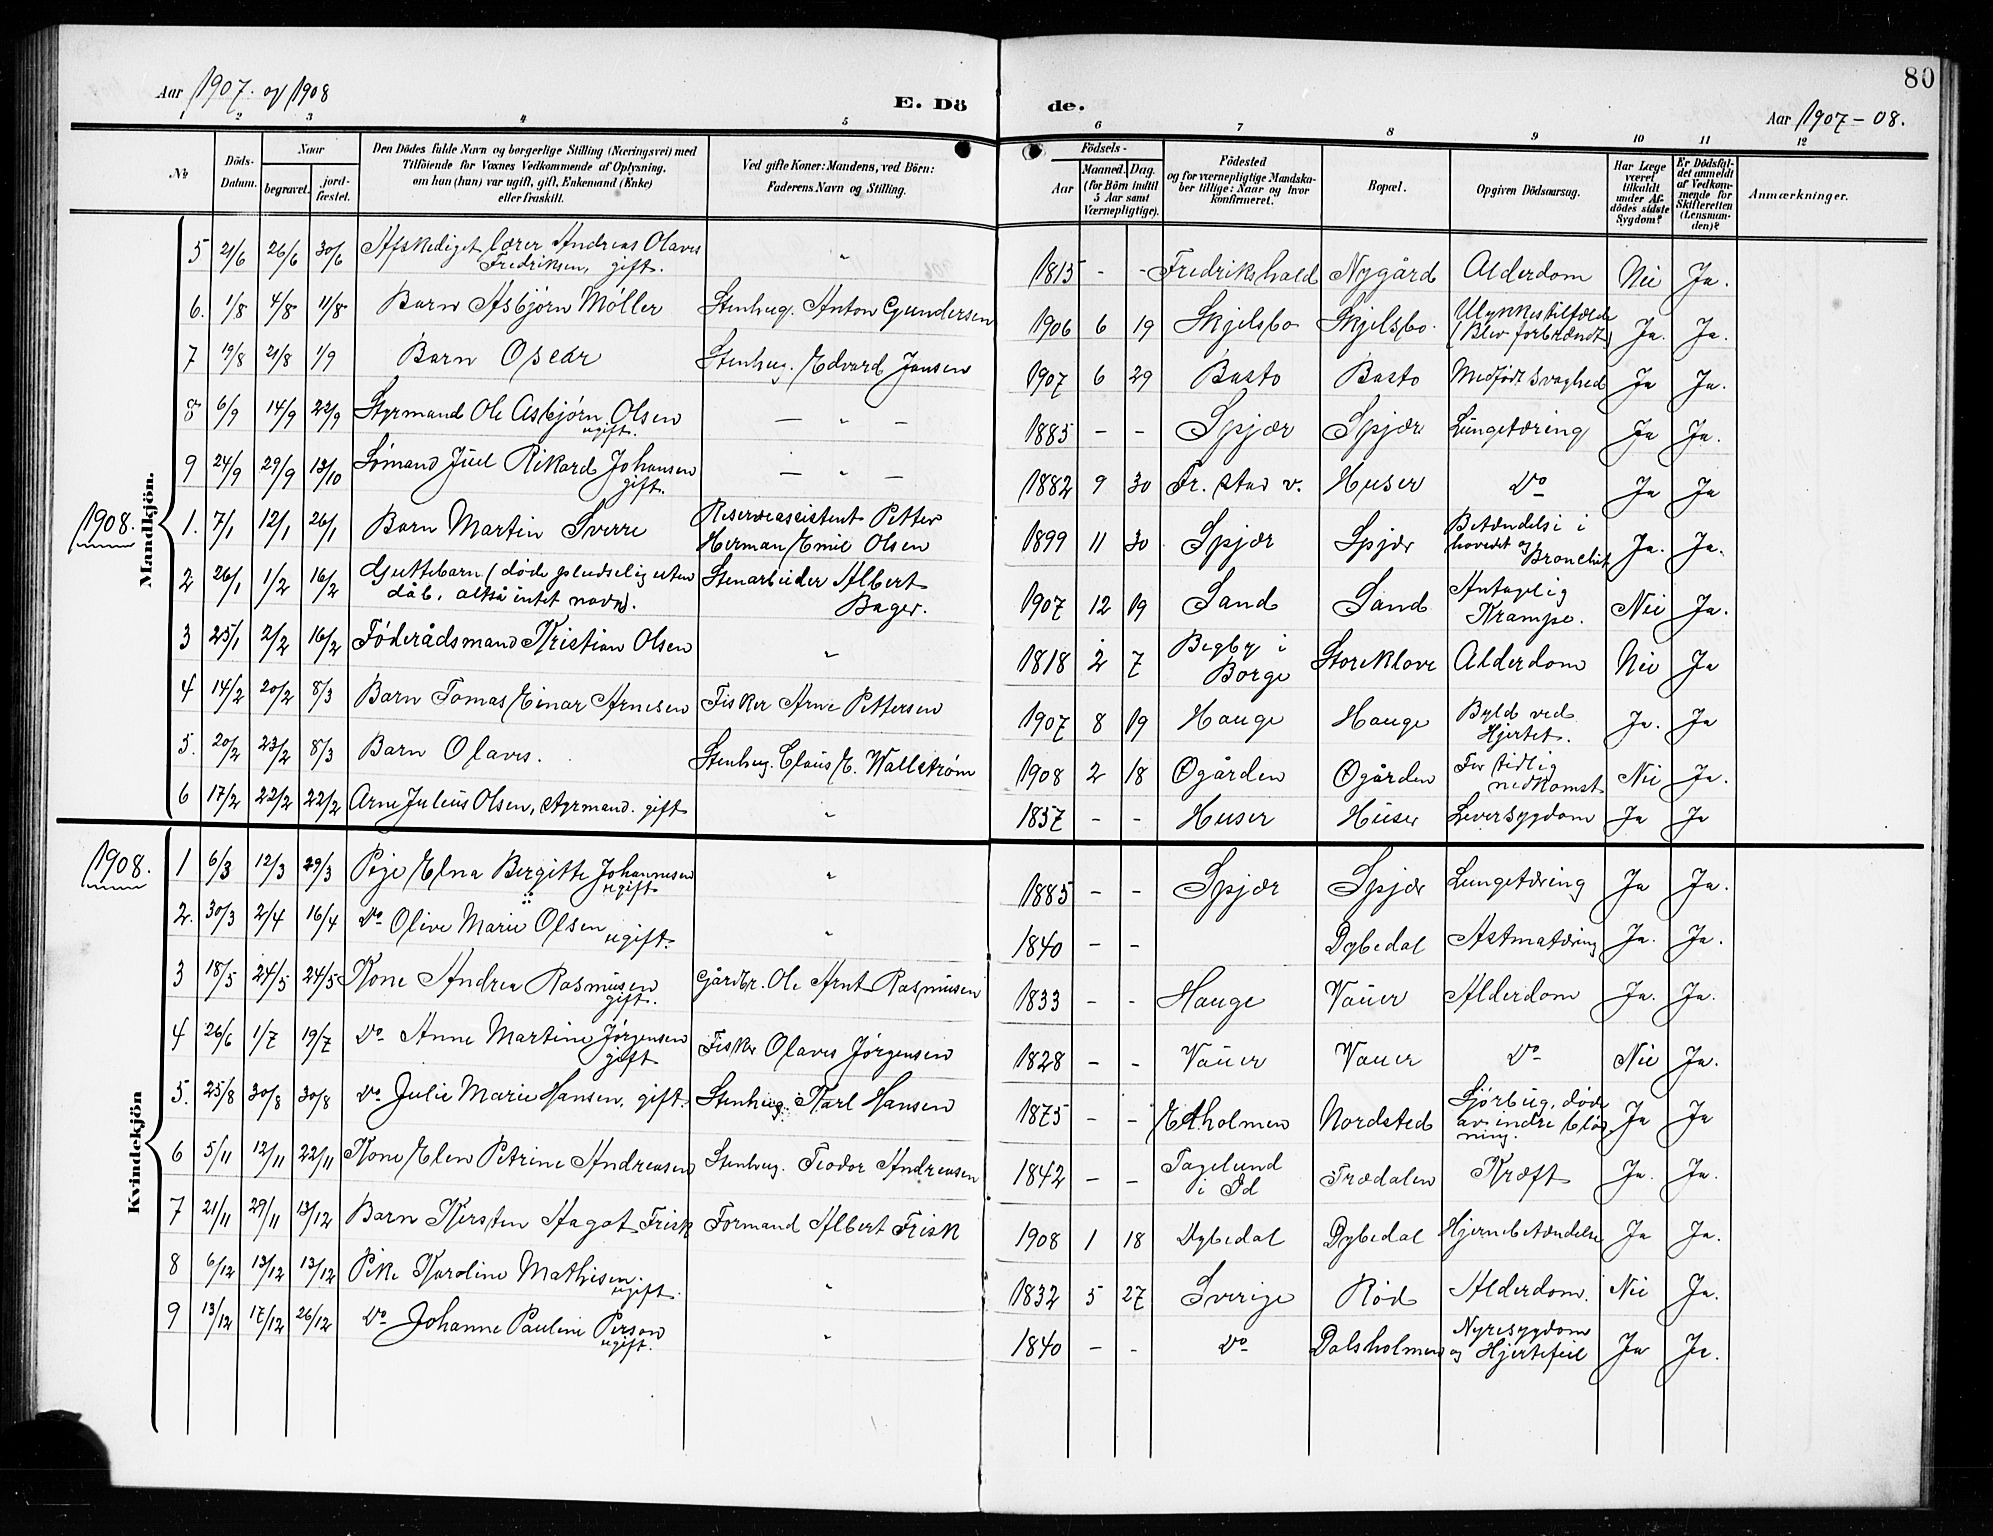 80
Aar 1907. og 1908
E. Dö
de.
Aar 1907-08.
1 2 3 4 5 6 7 8 9 10 11 12
№
Döds-Datum.
Naar
begravet.
jord-fæstet.
Den Dödes fulde Navn og borgerlige Stilling (Næringsvei) med
Tilföiende for Voxnes Vedkommende af Oplysning,
om hun (han) var ugift, gift, Enkemand (Enke)
eller fraskilt.
Ved gifte Koner: Mandens, ved Börn:
Faderens Navn og Stilling.
Födsels-
Aar
Maaned. Dag.
(for Börn indtil
5 Aar samt
Værnepligtige).
Födested
og for værnepligtige Mandska-
ber tillige: Naar og hvor
konfirmeret.
Bopæl.
Opgiven Dödsaarsag.
Har Læge
været
tilkaldt
under Af-
dödes sidste
Sygdom?
Er Dödsfal-
det anmeldt
af Vedkom-
mende for
Skifteretten
(Lensman-
den)?
Anmærkninger.
Mandkjön.
5 21/6 26/6 30/6 Afskediget lærer Andreas Olaves Fredriksen, gift. " 1815 - - Fredrikshald Nygård Alderdom Nei Ja.
6. 1/8 4/8 11/8 Barn Asbjørn Møller Stenhug. Anton Gundersen 1906 6 19 Skjelsbo Skjelsbo. Ulykkestilfælde (Blev forbrændt) Ja. Ja.
7 19/8 21/8 1/9 Barn Oscar Stenhug. Edvard Jansen 1907 6 29 Basto Basto Medfødt svaghed Ja Ja.
8 6/9 14/9 22/9 Styrmand Ole Asbjørn Olsen ugift. — " — 1885 - - Spjær Spjær Lungetæring Ja Ja.
9 24/9 29/9 13/10 Sømand Juel Rikard Johansen gift. — " — 1882 9 30 Fr. stad v. Huser Do Ja Ja
1908.
1. 7/1 12/1 26/1 Barn Martin Sverre Reserveassistent Petter Herman Emil Olsen 1899 11 30 Spjær Spjær Betændelse i hovedet og Bronchit Ja. Ja.
2 26/1 1/2 16/2 Guttebarn (døde pludselig uten dåb, altså intet navn). Stenarbeider Albert Bager. 1907 12 19 Sand Sand Antagelig Krampe. Nei Ja.
3 25/1 2/2 16/2 Føderådsmand Kristian Olsen " 1818 2 7 Begby i Borge Storeklove Alderdom Nei Ja
4 14/2 20/2 8/3 Barn Tomas Einar Arnesen Fisker Arne Pettersen 1907 8 19 Hauge Hauge Byld ved Hjertet. Ja. Ja
5. 20/2 23/2 8/3 Barn Olaves. Stenhug. Claus E. Wallstrøm 1908 2 18 Øgården Øgården For tidlig nedkomst Nei Ja.
6 17/2 22/2 22/2 Arne Julius Olsen, styrmand. gift " 1857 - - Huser Huser Leversygdom Ja Ja
Kvindekjön
1908.
1 6/3 12/3 29/3 Pige Elna Bergitte Johannesen ugift " 1885 - - Spjær Spjær Lungetæring Ja Ja.
2. 30/3 2/4 16/4 Do Olive Marie Olsen ugift. " 1840 - - Dybedal Astmatæring Ja. Ja.
3 18/5 24/5 24/5 Kone Andrea Rasmusen gift. Gårdbr. Ole Arnt Rasmusen 1833 - - Hauge Vauer Alderdom Ja. Ja.
4 26/6 1/7 19/7 Do Anne Martine Jørgensen gift Fisker Olaves Jørgensen 1828 - - Vauer Vauer Do Nei Ja.
5. 25/8 30/8 30/8 Do Julie Marie Hansen, gift. Stenhug. Karl Hansen 1875 - - Etholmen Nordsted døde av indre blødning. Ja Ja
6 5/11 12/11 22/11 Kone Elen Petrine Andreasen Stenhug. Teodor Andreasen 1842 - - i Id Trædalen Kræft Ja. Ja.
7 21/11 29/11 13/12 Barn Kersten Hagot Frisk Formand Albert Frisk 1908 1 18 Dybedal Dybedal Hjernebetændelse Ja Ja.
8 6/12 13/12 13/12 Pike Karoline Mathisen. ugift. " 1832 5 27 Sverige Rød Alderdom. Nei Ja.
9 13/12 17/12 26/12 Do Johanne Pauline Person ugift. " 1840 - - Do Dalsholmen Nyresygdom og Hjertefeil Ja Ja.